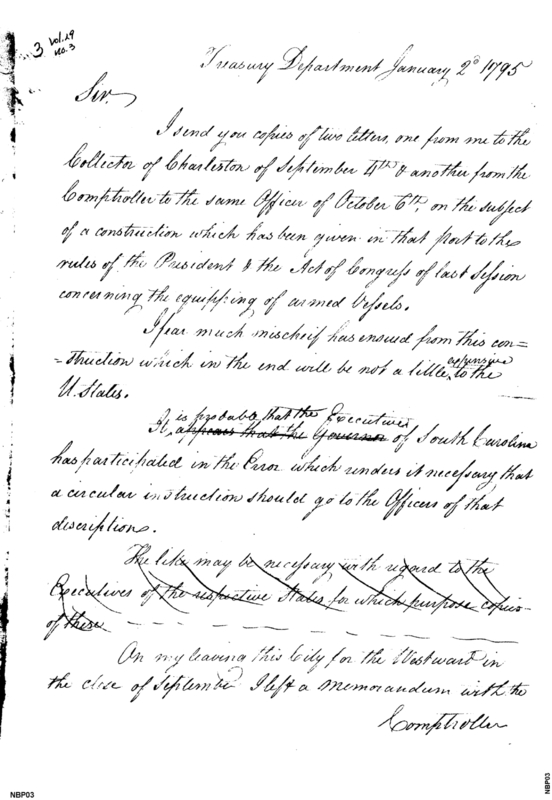 3 Vol. 29
no. 3
Treasury Department January 2d 1795
Sir,
I send you copies of two letters, one from me to the
Collector of Charleston of September 4th & another from the
Comptroller to the same Officer of October 6th, on the subject
of a construction which has been given in that port to the
rules of the President & the Act of Congress of last Session
concerning the equipping of armed Vessels.
I fear much mischeif has ensued from this con=
=struction which in the end will be not a little expensive to the
U States.
is probable that the Executives
It appears that the Governor of South Carolina
has participated in the Error which renders it necessary that
a circular instruction should go to the Officers of that
description.
The like may be necessary with regard to the
Executives of the respective States for which purpose copies
of these
On my leaving this City for the Westward in
the close of September I left a memorandum with the
Comptroller
NBP03
NBP03